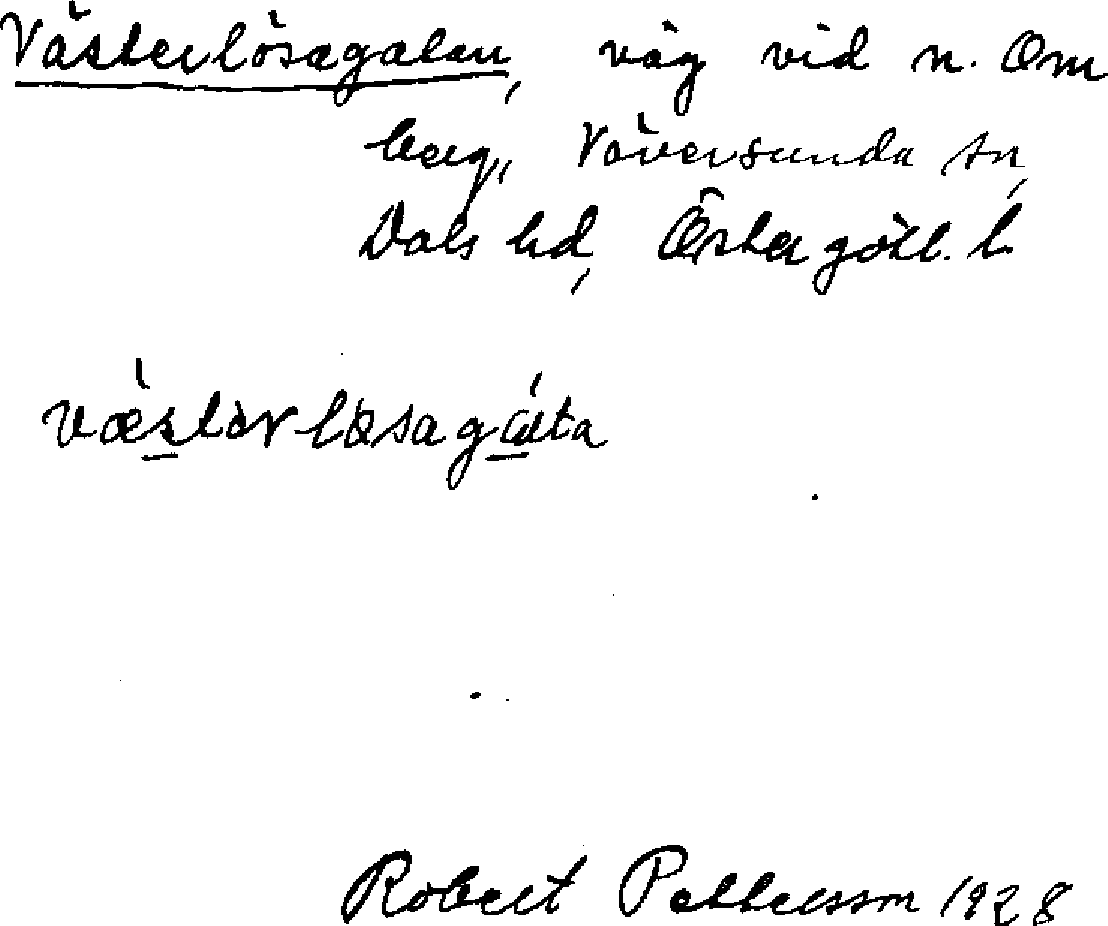 Västerlösagatan, väg vid n. Om
berg, Väversunda sn,
Dals hd, Östergötl. l.
væstərløsagata
Robert Pettersson 1928